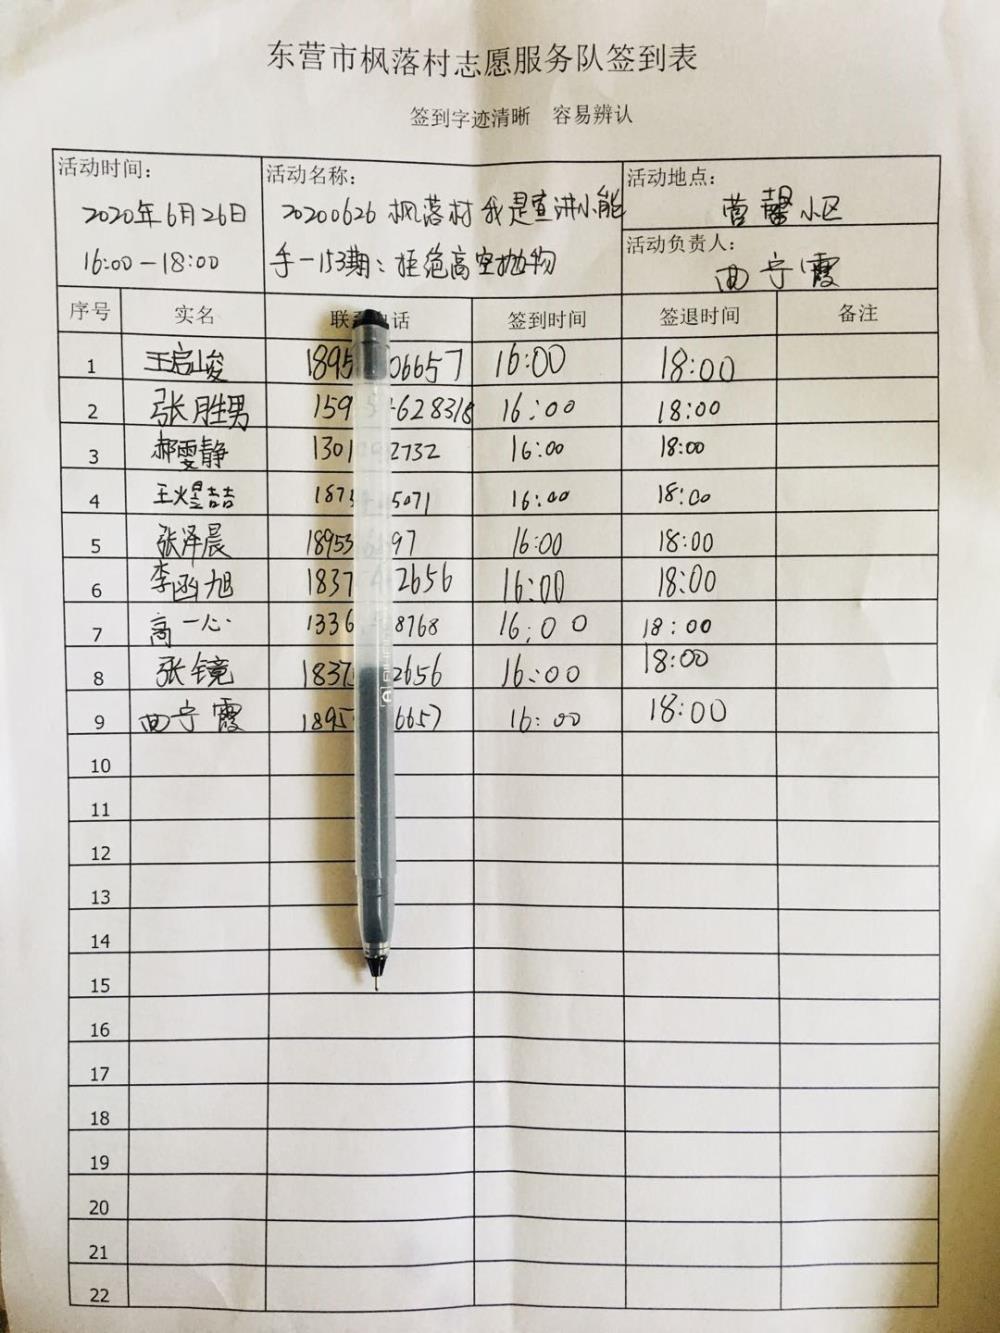 东营市枫落村志愿服务队签到表
签到字迹清晰 容易辨认
活动时间：
2020年6月26日
16:00-18:00
活动名称：
20200626 枫落村 我是宣讲小能
手-153期：拒绝高空抛物
活动地点：
营馨小区
活动负责人：
曲宁霞
序号 实名 联 话 签到时间 签退时间 备注
1 王启峻 1895 06657 16:00 18:00
2 张胜男 159 628318 16:00 18:00
3 郝雯静 1301 2732 16:00 18:00
4 王煜喆 187 5071 16:00 18:00
5 张泽晨 18953 97 16:00 18:00
6 李函旭 1837 2656 16:00 18:00
7 高一心 1336 8768 16:00 18:00
8 张镜 1837 2656 16:00 18:00
9 曲宁霞 1895 6657 16:00 18:00
10
11
12
13
14
15
16
17
18
19
20
21
22